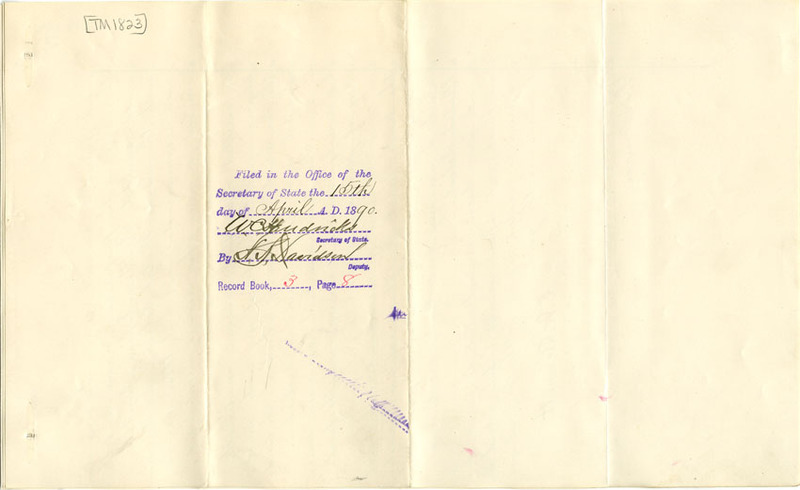 [TM1823]
Filed in the Office of the
Secretary of State the 15th
day of April A. D. 1890.
W C Hendricks
Secretary of State.
By Davidson
Deputy.
Record Book, 3, Page 8